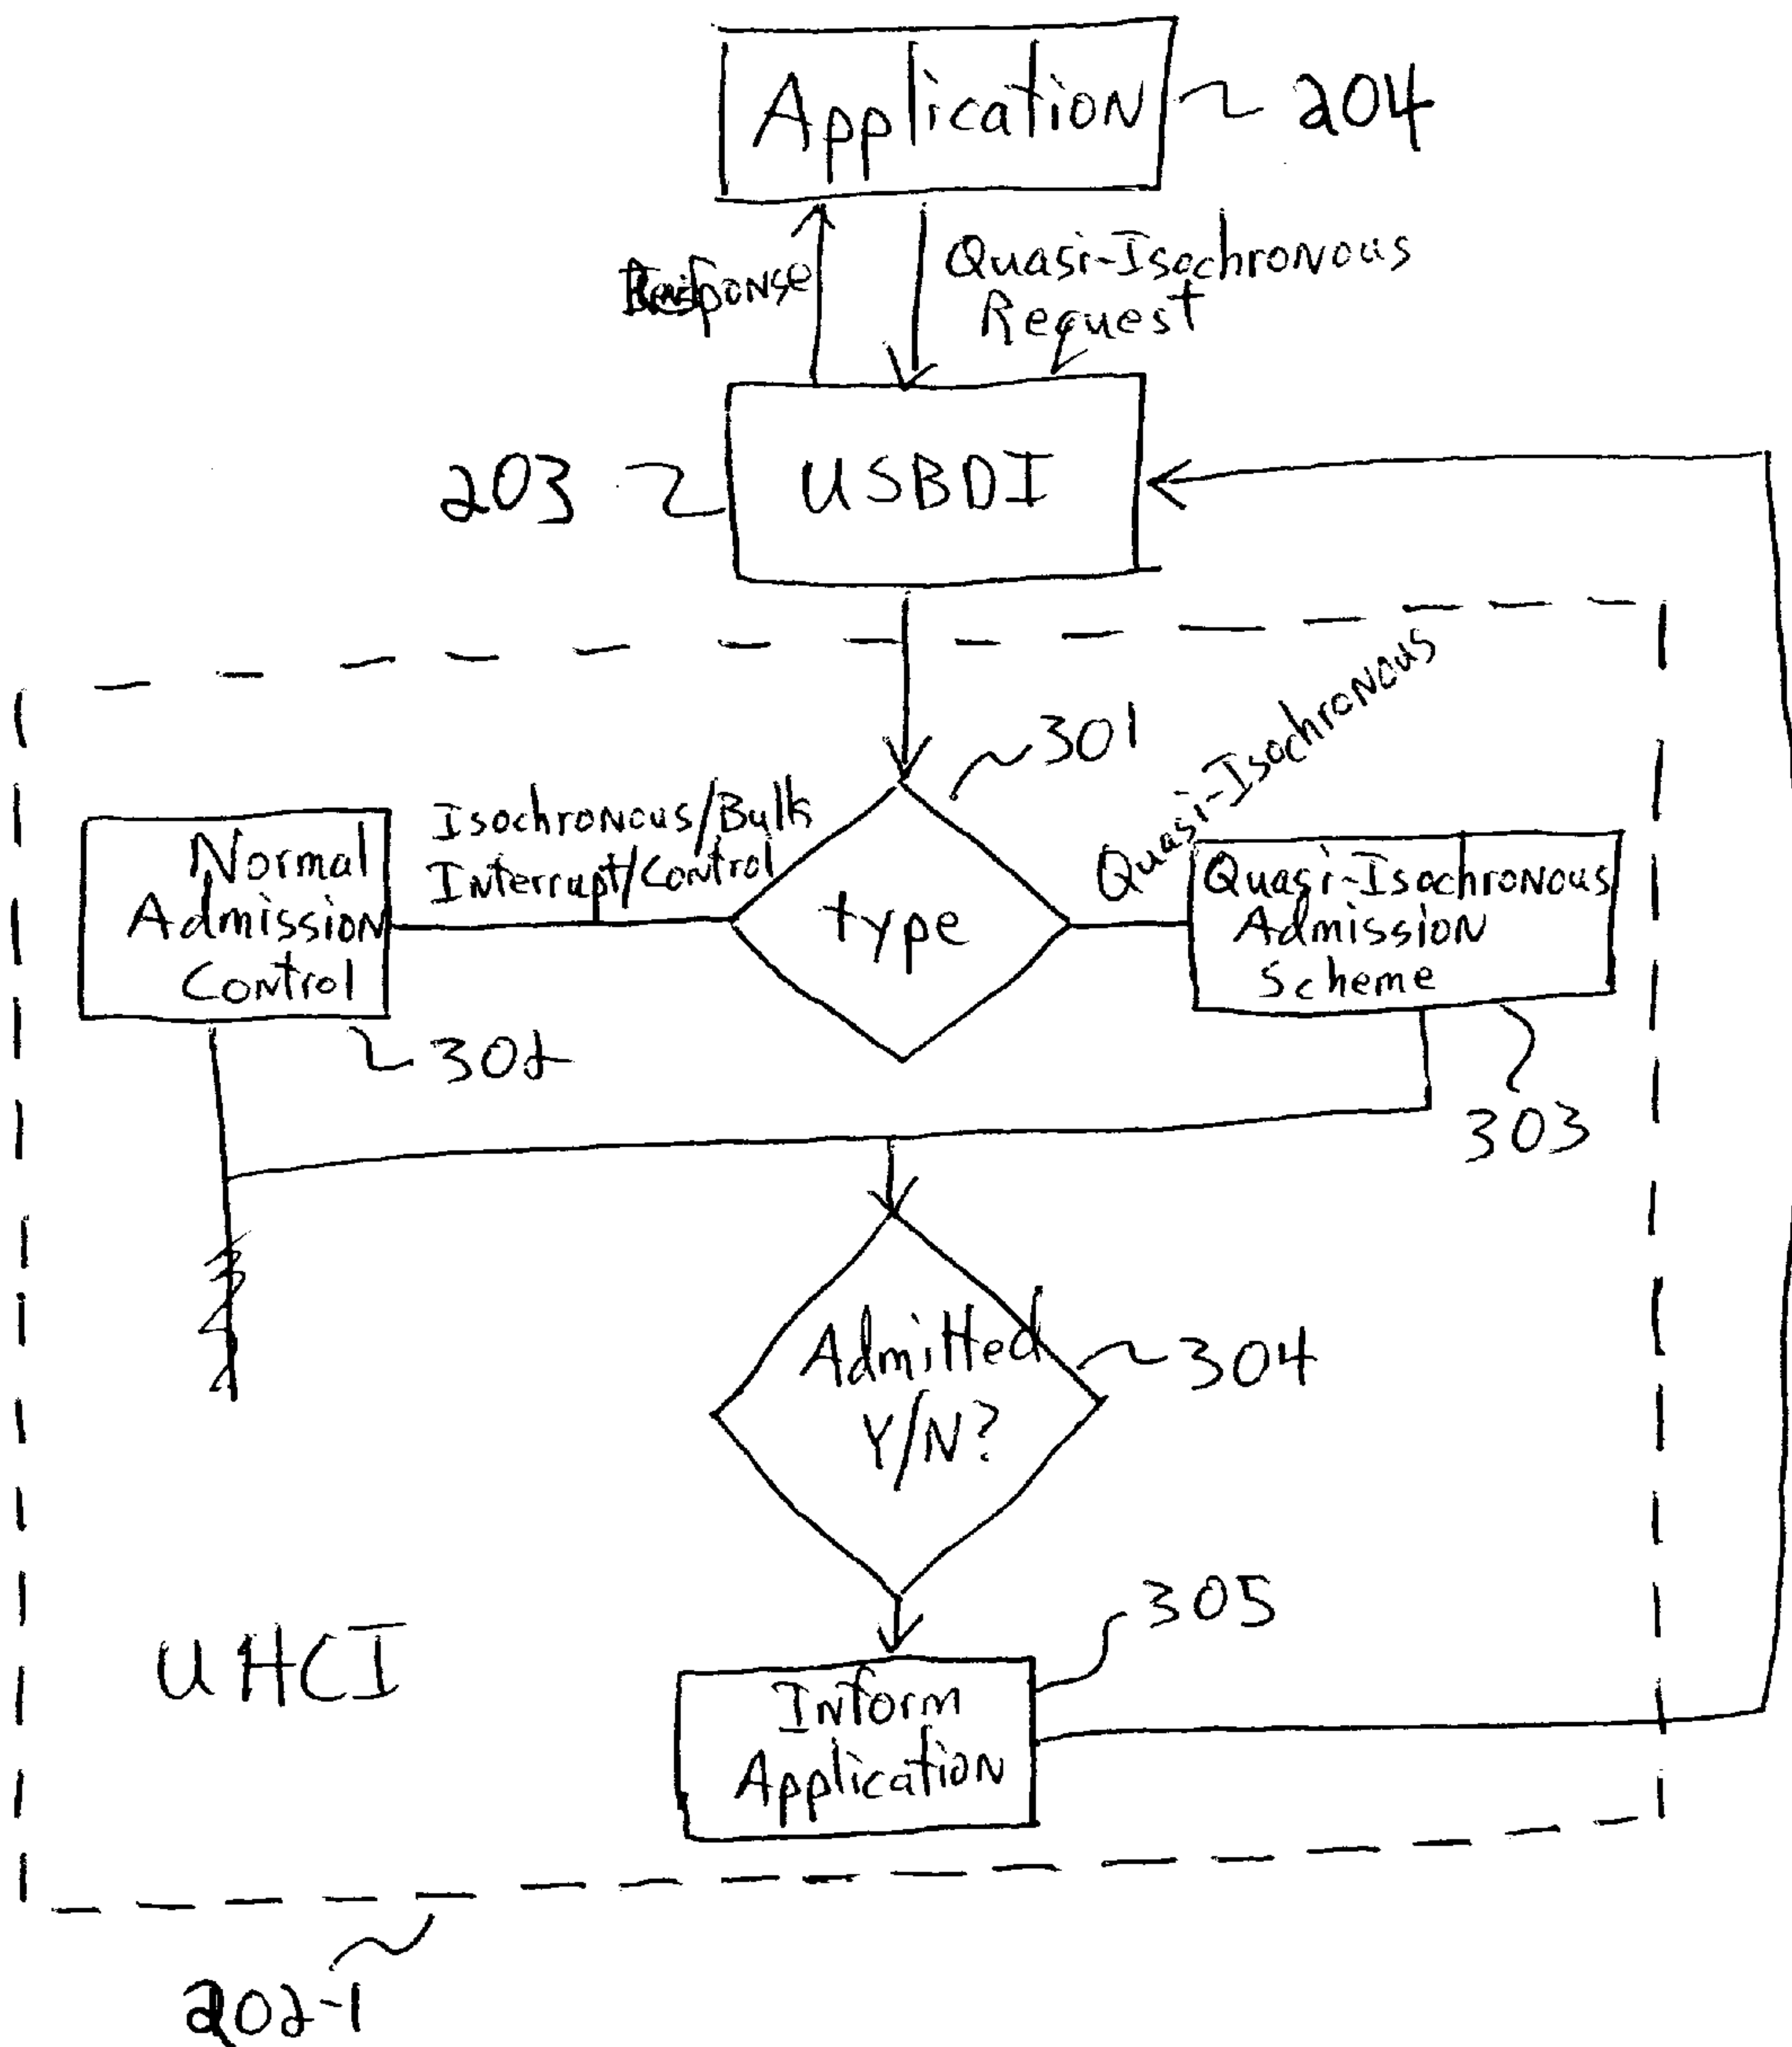 Application
204
Response
Quasi-Isochronous
Request
203
USBDI
301
Quasi-Isochronous
Isochronous/Bulk
Interrupt/Control
Normal
Admission
Control
type
Quasi-Isochronous
Admission
Scheme
302
303
Admitted
Y/N?
304
305
UHCI
Inform
Application
202-1